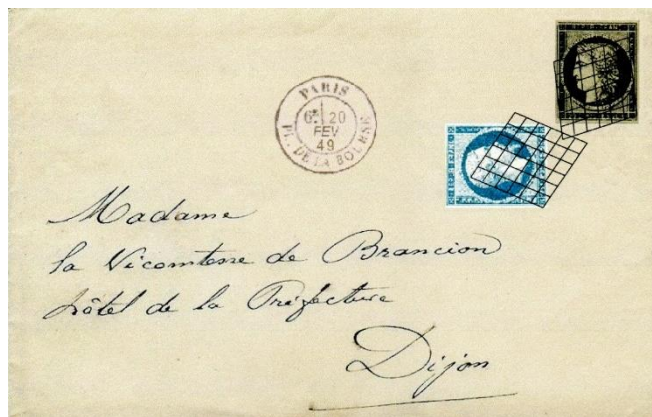 PARIS
6E 20
FEV
49
PL. DE LA BOURSE
Madame
la Vicomtesse de Brancion
hôtel de la Préfecture
Dijon